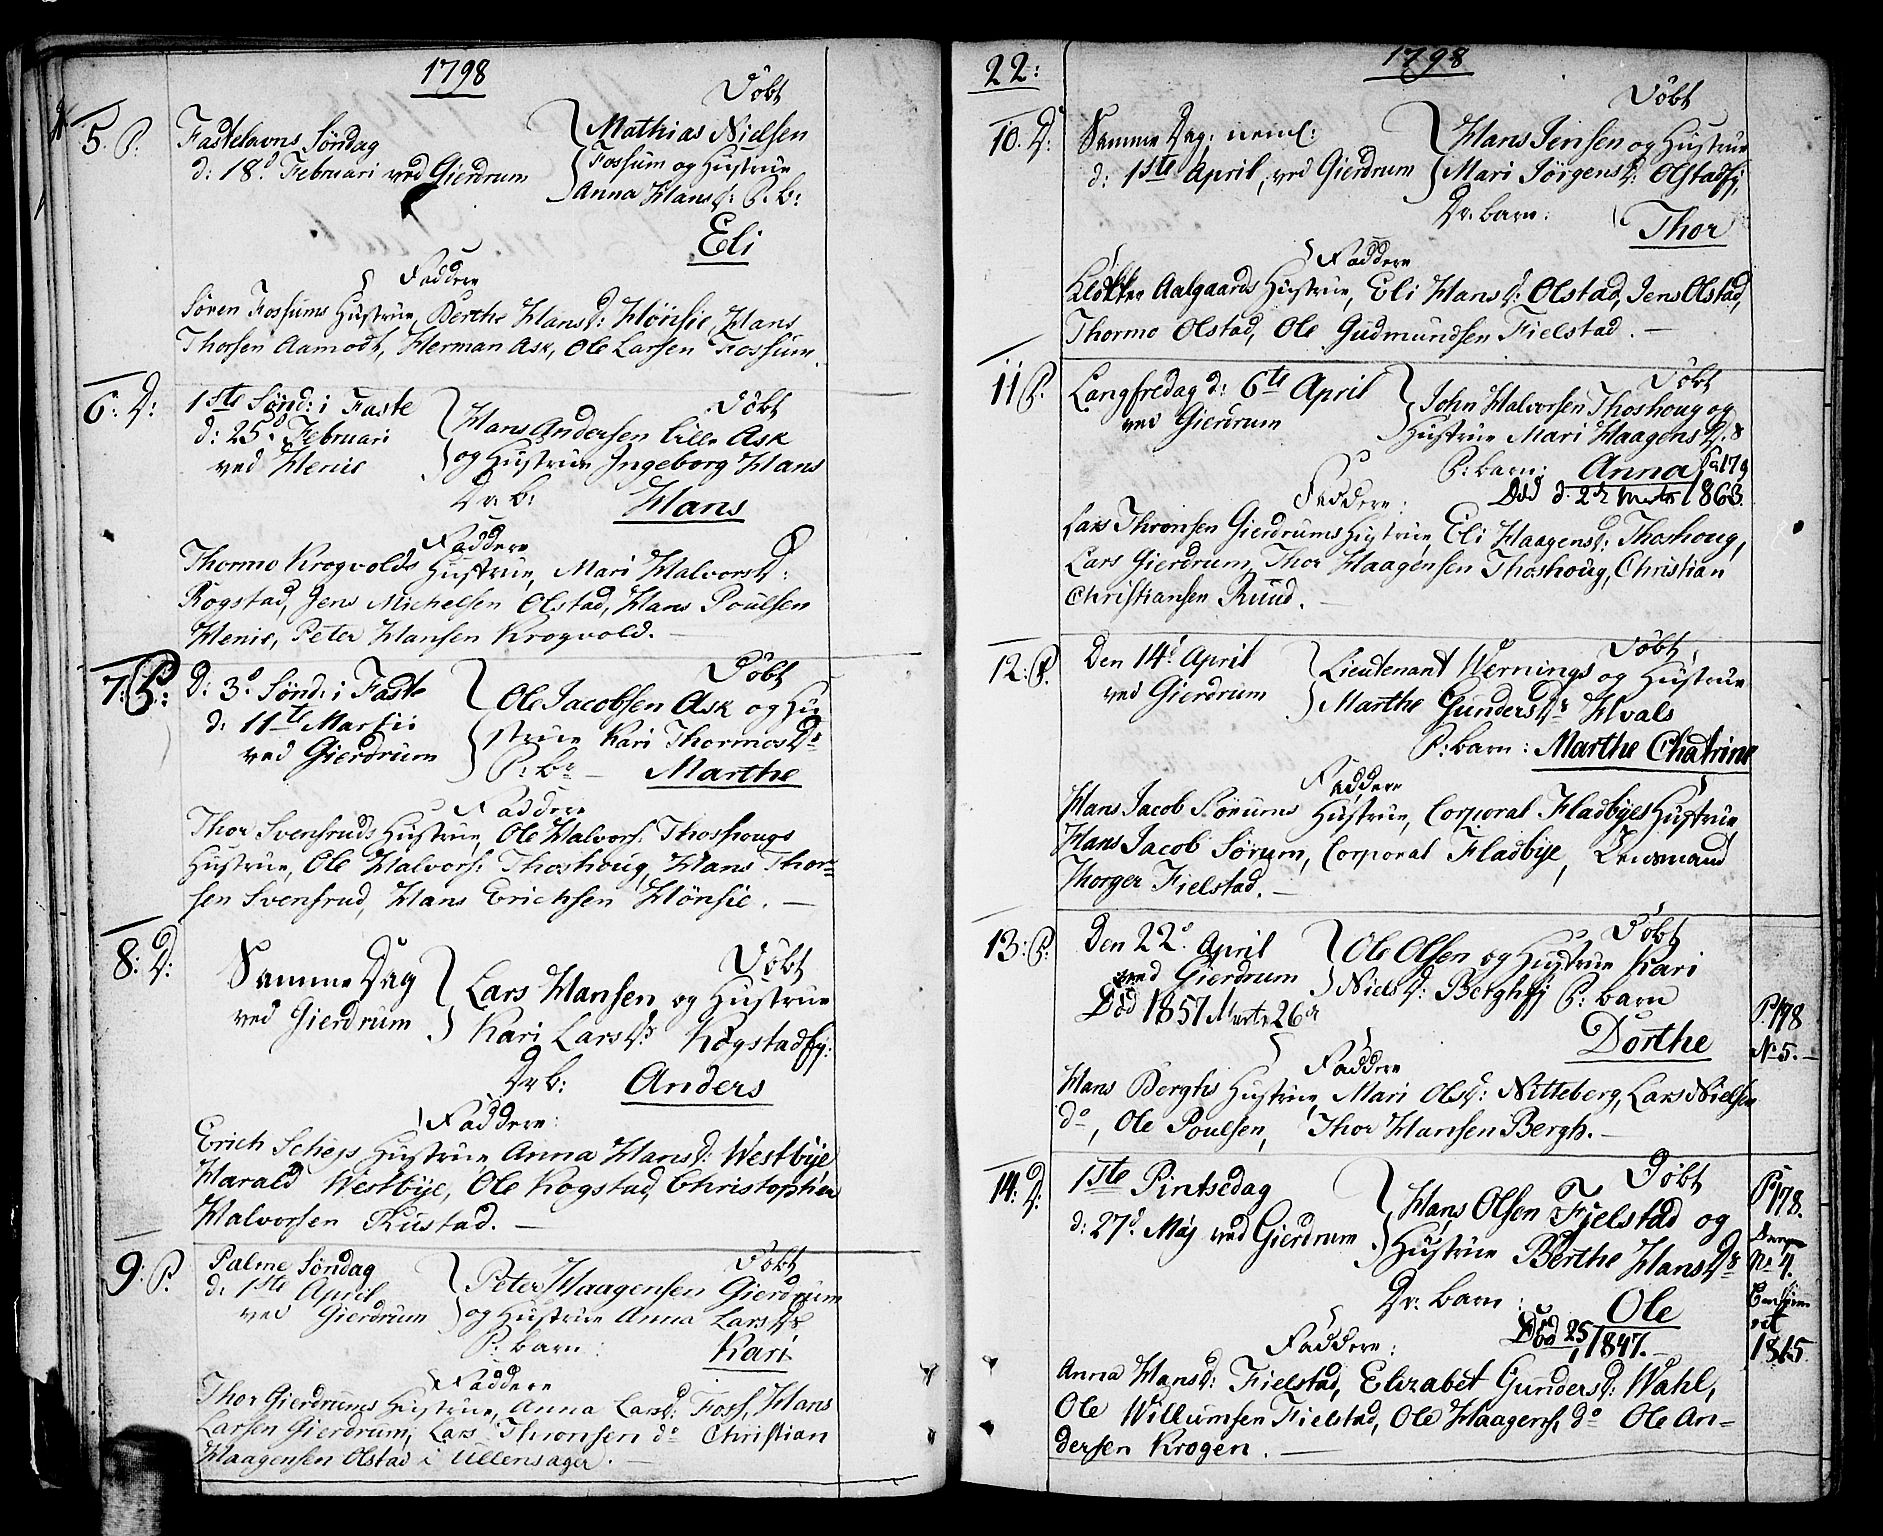 1798
5. P.
Fastelavns Søndag
d: 18d Februari ved Gierdrum
Døbt
Mathias Nielsen
Fossum og Hustrue
Anna Hansd: P. b:
Eli
Faddere
Søren Fossums Hustrue, Berthe Hansd: Hønsie, Hans
Thorsen Aamodt, Herman Ask, Ole Larsen Fossum.
6: D:
1ste Sønd: i Faste
d: 25d Februari
ved Henie
Døbt
Hans Andersen Lille Ask
og Hustrue Ingeborg Hans
Dr b:
Hans
Faddere
Thormo Krogvolds Hustrue, Mari Halvorsd:
Rogstad, Jens Michelsen Olstad, Hans Poulsen
Henie, Peter Hansen Krogvold.
7: P:
D: 3d Sønd: i Faste
d: 11te Martii
ved Gierdrum
Døbt
Ole Jacobsen Ask og Hu
strue Kari Thormosdr
P: br
Marthe
Faddere
Thor Svensruds Hustrue, Ole Halvors: Thoshougs
Hustrue, Ole Halvors: Thoshoug, Hans Thor=
sen Svensrud, Hans Erichsen Hønsie.
8: D:
Samme Dag
ved Gierdrum
Døbt
Lars Hansen og Hustrue
Kari Larsdr Kogstadej:
Dr b:
Anders
Faddere:
Erich Scheys Hustrue, Anna Hansd: Westbye
Harald Westbye, Ole Kogstad, Christopher
Halvorsen Rustad.
9: P.
Palme Søndag
d: 1ste April
ved Gierdrum
Døbt
Peter Haagensen Gierdrum
og Hustrue Anna Larsdr
P: barn:
Kari
Faddere
Thor Gierdrums Hustrue, Anna Larsd: Foss, Hans
Larsen Gierdrum, Lars Thronsen do Christian
Haagensen Olstad i Ullensager.
22:
1798
10. D:
Samme Dag, neml:
d: 1ste April, ved Gierdrum
Døbt
Hans Jensen og Hustrue
Mari Jørgensd: Olstadej,
Dr. barn:
Thor
Faddere
Klokker Aalgaards Hustrue, Eli Hansd: Olstad, Jens Olstad,
Thormo Olstad, Ole Gudmundsen Fielstad.
11 P.
Langfredag d: 6te April
ved Gierdrum
Døbt
John Halvorsen Thoshoug og
Hustrue Mari Haagensd.
P: barn: Anna
Død d. 1863.
Faddere:
Lars Thronsen Gierdrums Hustrue, Eli Haagensd: Thoshoug,
Lars Gierdrum, Thor Haagensen Thoshoug, Christian
Christiansen Ruud.
12: P.
Den 14d April
ved Gierdrum
Døbt
Lieutenant Wernings og Hustrue
Marthe Gundersdr Hvals
P: barn: Marthe Chatrine
Faddere
Hans Jacob Sørums Hustrue, Corporal Fladbyes Hustrue
Hans Jacob Sørum, Corporal Fladbye, Lensmand
Thorger Fielstad.
13: P.
Den 22d April
ved Gierdrum
Død 1857 Marts 26d
Døbt
Ole Olsen og Hustrue Kari
Nielsd: Berghej P: barn
Dorthe
P. 198
No 5.
Faddere
Hans Berghs Hustrue, Mari Olsd: Nitteberg, Lars Nielsen
do, Ole Poulsen, Thor Hansen Bergh.
14: D:
1ste Pintsedag
d: 27d Maj ved Gierdrum
Døbt
Hans Olsen Fjelstad og
Hustrue Berthe Hansdr
Dr. barn:
Ole
Død 25 1847.
P 178.
No 4.
1815
Faddere:
Anna Hansd: Fielstad, Elizabet Gundersd: Wahl,
Ole Willumsen Fielstad, Ole Haagens. do Ole An-
dersen Krogen.